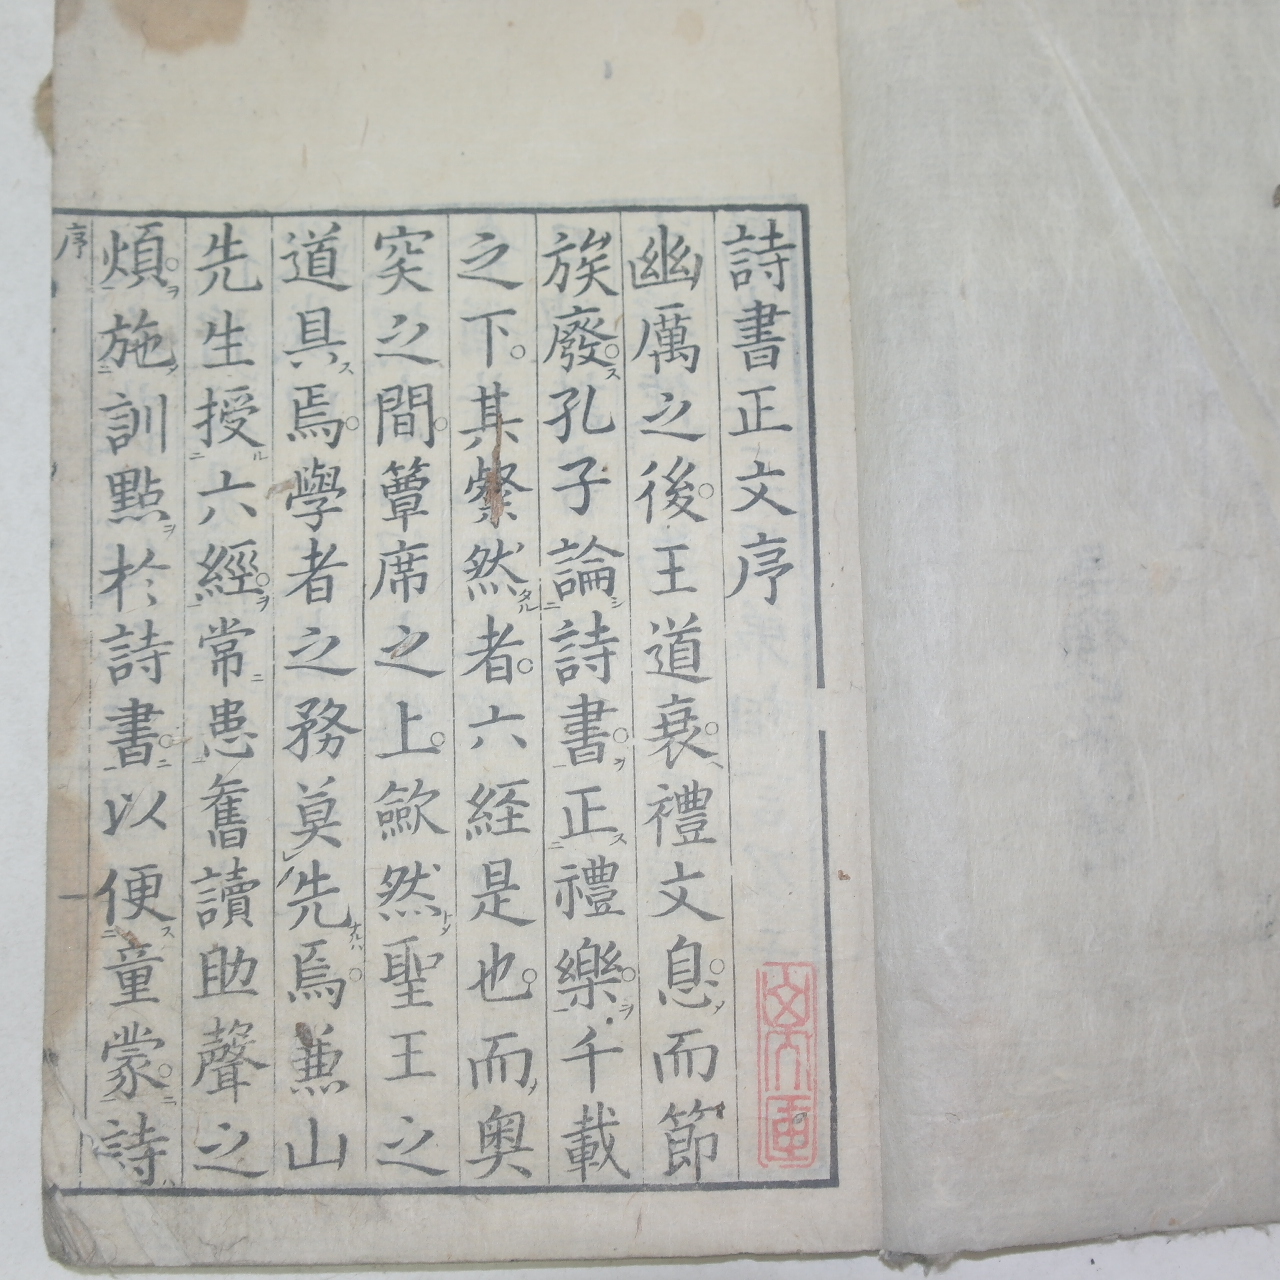 詩書正文序
幽厲之後王道衰禮文息而節
族廢孔子論詩書正禮樂千載
之下其粲然者六経是也而奥
窔之間簟席之上歛然聖王之
道具焉學者之務莫先焉兼山
先生授六經常患舊讀助聲之
煩施訓點於詩書以便童蒙詩
序